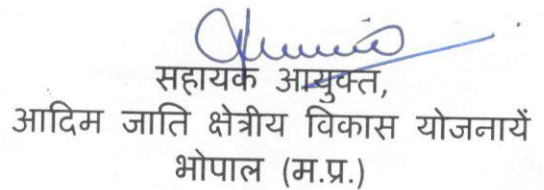 सहायक आयुक्त,
आदिम जाति क्षेत्रीय विकास योजनायें
भोपाल (म.प्र.)